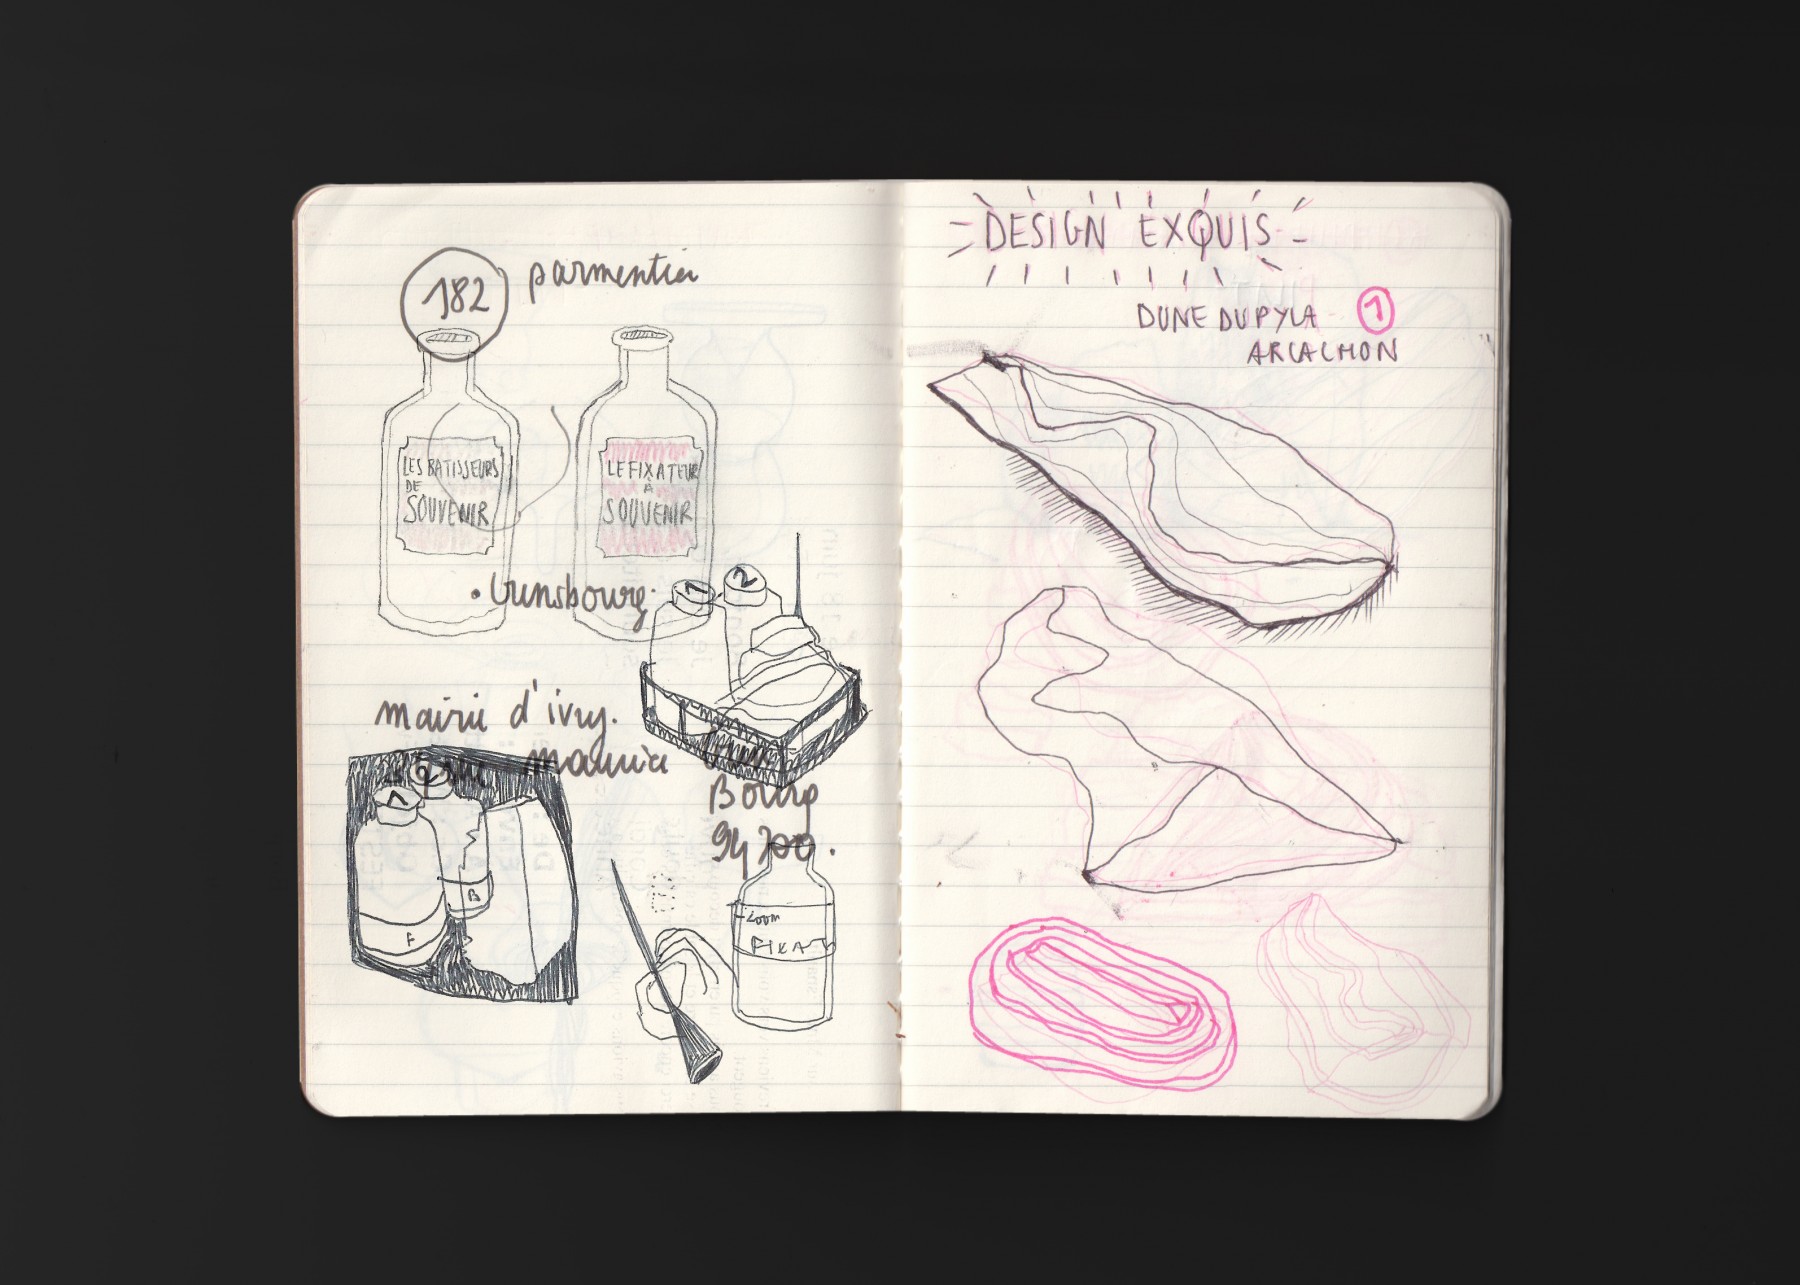 182 parmentier
LES BATISSEURS
DE
SOUVENIR
LE FIXATEUR
À
SOUVENIR
1
2
mairie d'ivry.
Bourg
94200.
2
1
B
F
Zoom
FIXAT
DESIGN EXQUIS
DUNE DU PYLA 1
ARCACHON